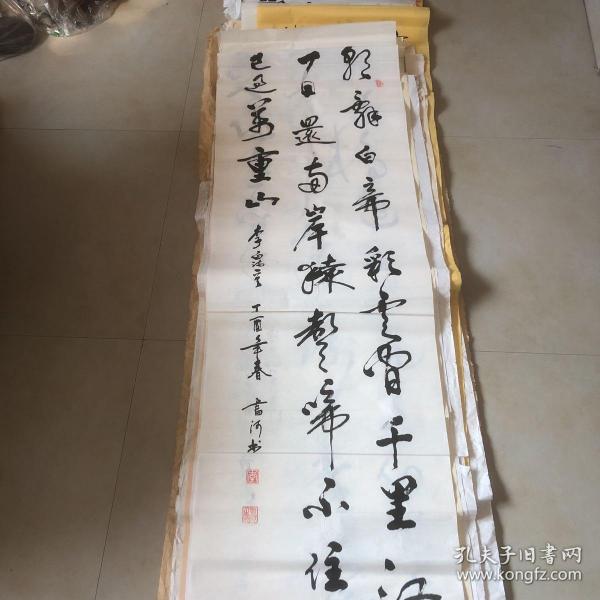 朝辞白帝彩云间千里江
一日還两岸猿声啼不住
已过萬重山 李白诗 丁酉年春 富河书
孔夫子旧書网
www.kongfz.com